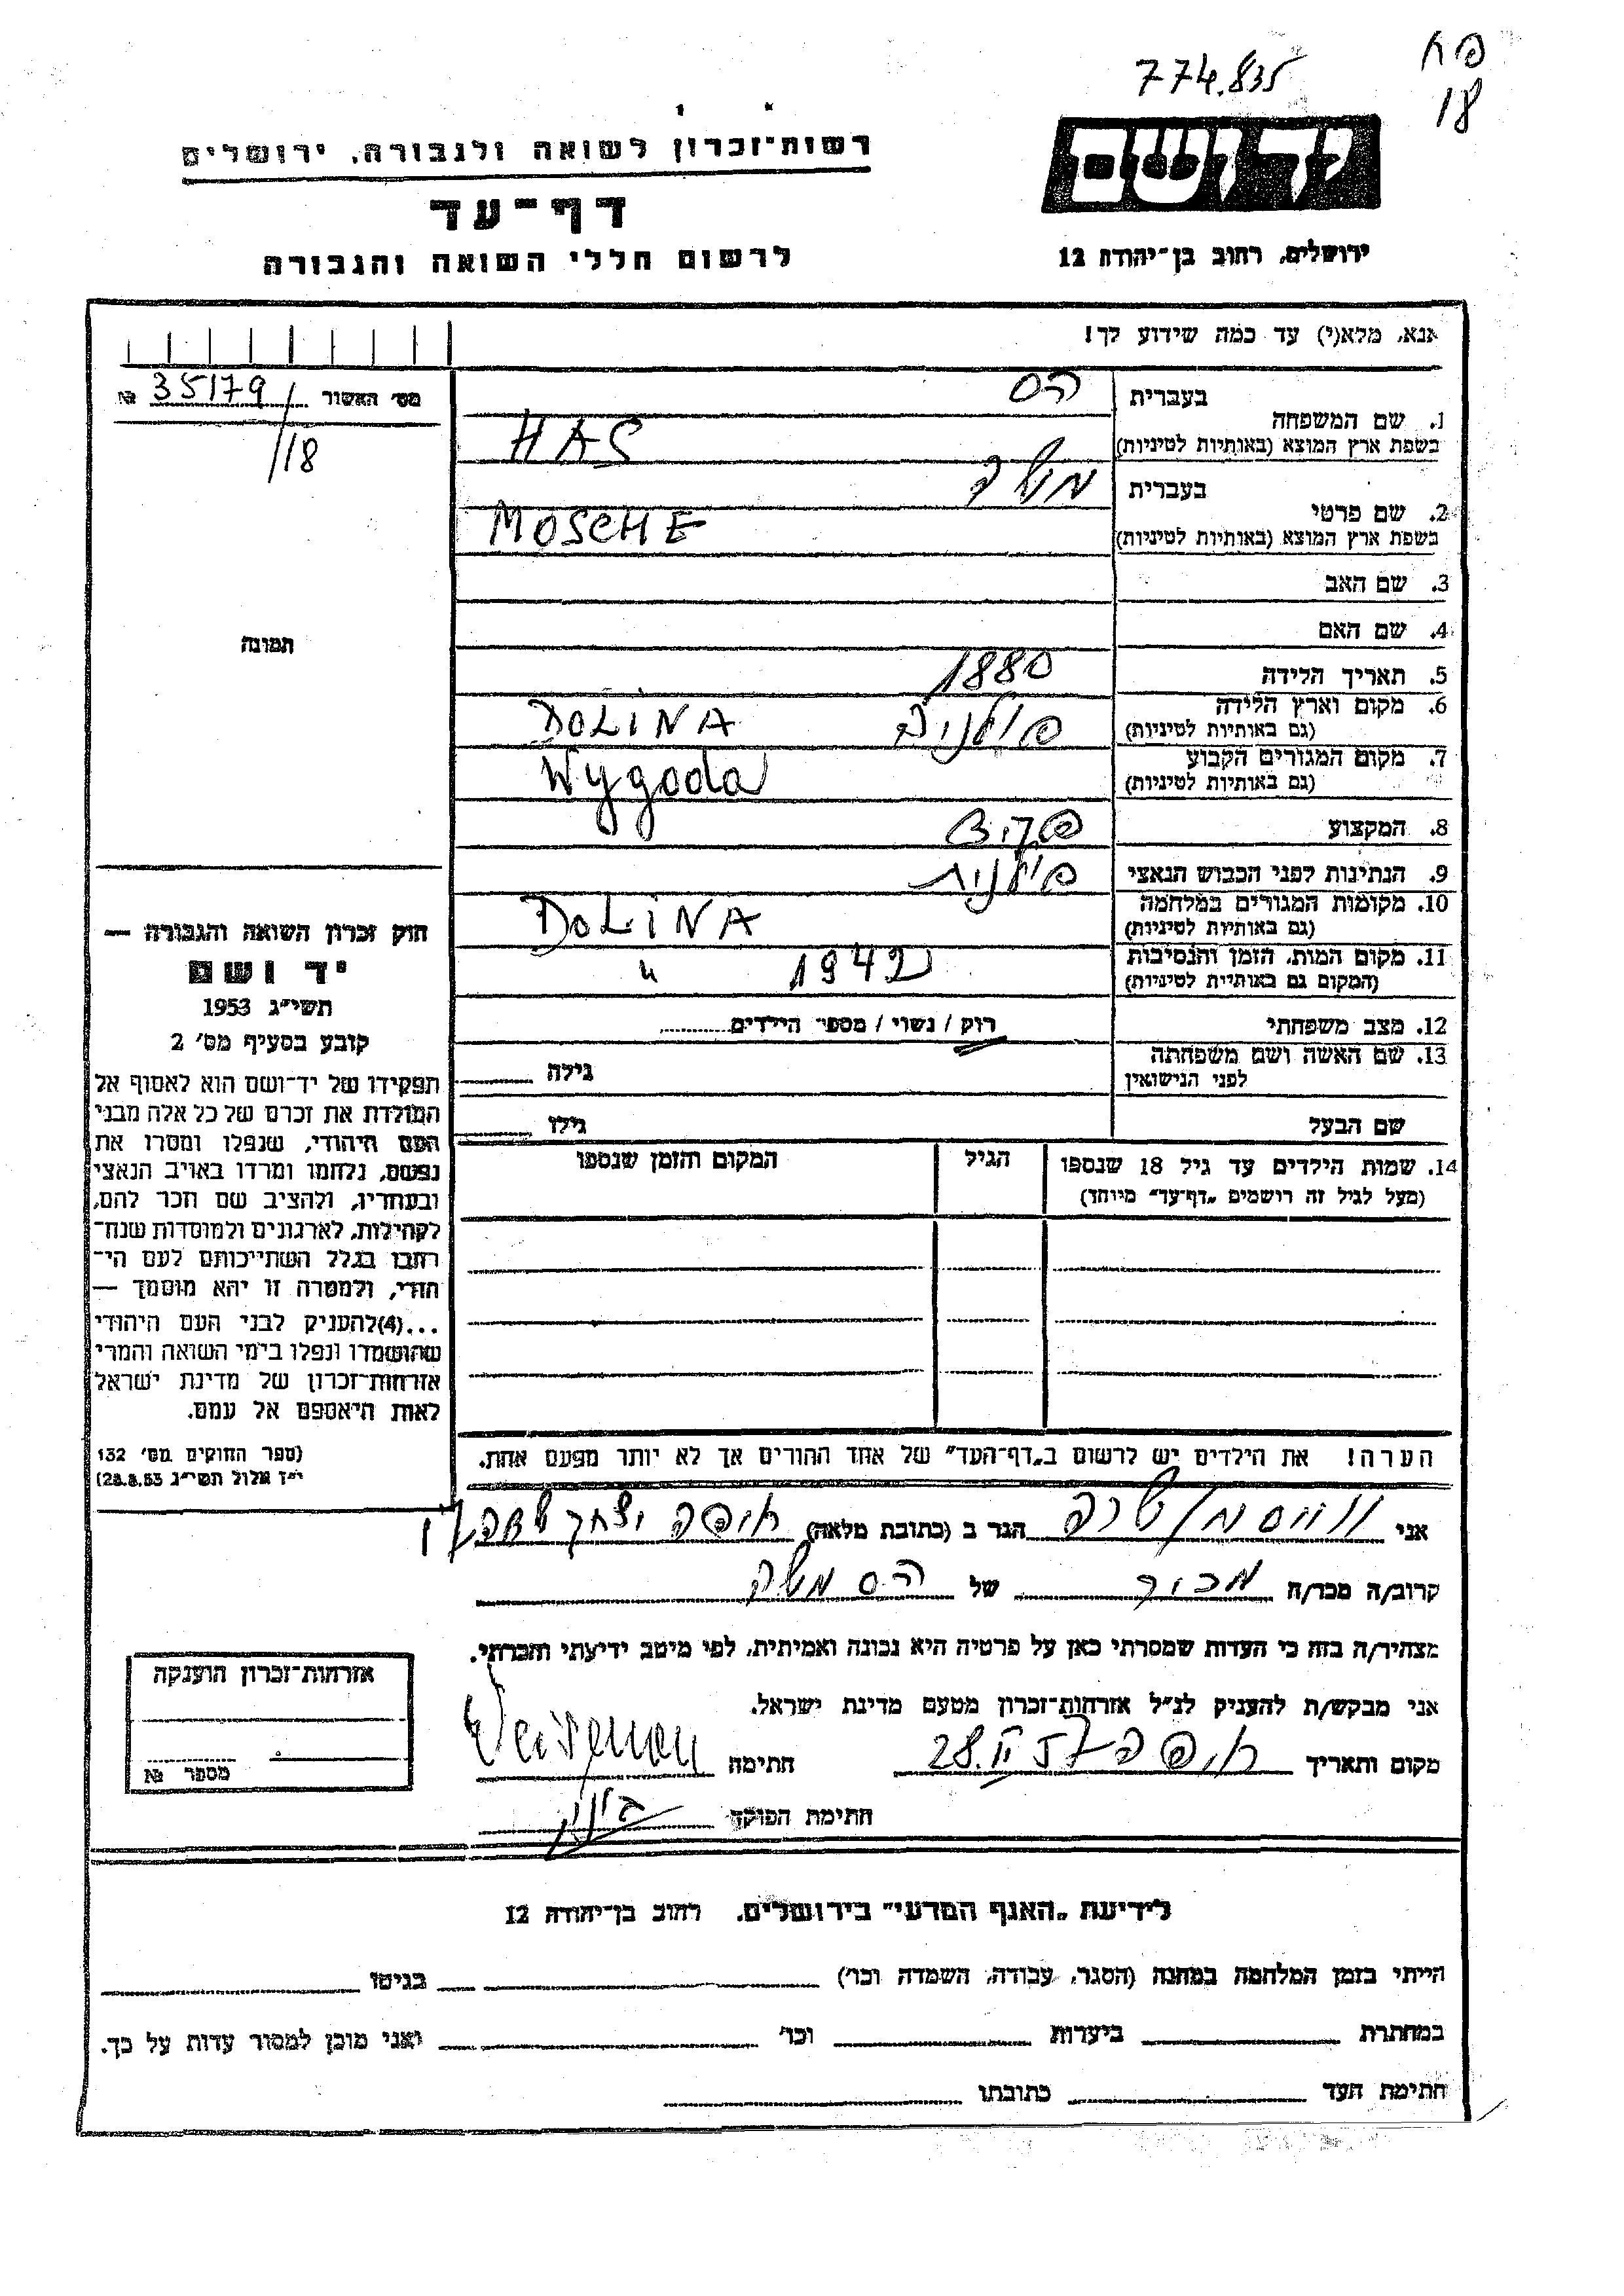 774.835
18
רשות־זכרון לשואה ולגבורה, ירושלים
דף־עד
לרשום חללי השואה והגבורה
יד ושם
ירושלים, רחוב בן־יהודה 12
אנא, מלא(י) עד כמה שידוע לך!
מס׳ האשור 35179 №
/18
תמונה
בעברית הס
1. שם המשפחה
בשפת ארץ המוצא (באותיות לטיניות) HAS
בעברית משה
2. שם פרטי
בשפת ארץ המוצא (באותיות לטיניות) MOSCHE
3. שם האב
4. שם האם
5. תאריך הלידה 1880
6. מקום וארץ הלידה
(גם באותיות לטיניות) פולניה DOLINA
7. מקום המגורים הקבוע
(גם באותיות לטיניות) Wygoda
8. המקצוע פקיד
9. הנתינות לפני הכבוש הנאצי פולנית
10. מקומות המגורים במלחמה
(גם באותיות לטיניות) DOLINA
11. מקום המות, הזמן והנסיבות
(המקום גם באותיות לטיניות) 1942 "
12. מצב משפחתי רוק / נשוי / מספר הילדים
13. שם האשה ושם משפחתה
לפני הנישואין גילה
שם הבעל גילו
14. שמות הילדים עד גיל 18 שנספו הגיל המקום והזמן שנספו
(מעל לגיל זה רושמים „דף־עד” מיוחד)
חוק זכרון השואה והגבורה —
יד ושם
תשי״ג 1953
קובע בסעיף מס׳ 2
תפקידו של יד־ושם הוא לאסוף אל
המולדת את זכרם של כל אלה מבני
העם היהודי, שנפלו ומסרו את
נפשם, נלחמו ומרדו באויב הנאצי
ובעוזריו, ולהציב שם וזכר להם,
לקהילות, לארגונים ולמוסדות שנח־
רבו בגלל השתייכותם לעם הי־
הודי, ולמטרה זו יהא מוסמך —
...(4)להעניק לבני העם היהודי
שהושמדו ונפלו בימי השואה והמרי
אזרחות־זכרון של מדינת ישראל
לאות היאספם אל עמם.
(ספר החוקים מס׳ 132
י״ז אלול תשי״ג 28.8.53)
הערה! את הילדים יש לרשום ב„דף־העד” של אחד ההורים אך לא יותר מפעם אחת.
אני שרה הגר ב (כתובת מלאה) חיפה יצחק
קרוב/ה מכר/ה מכיר של הס משה
מצהיר/ה בזה כי העדות שמסרתי כאן על פרטיה היא נכונה ואמיתית, לפי מיטב ידיעתי והכרתי.
אני מבקש/ת להעניק לנ״ל אזרחות־זכרון מטעם מדינת ישראל.
מקום ותאריך חיפה 28.II.57 חתימה
חתימת הפוקד
אזרחות־זכרון הוענקה
מספר №
לידיעת „האגף המדעי” בירושלים, רחוב בן־יהודה 12
הייתי בזמן המלחמה במחנה (הסגר, עבודה, השמדה וכו׳) בגיטו
במחתרת ביערות וכו׳ ואני מוכן למסור עדות על כך.
חתימת העד כתובתו